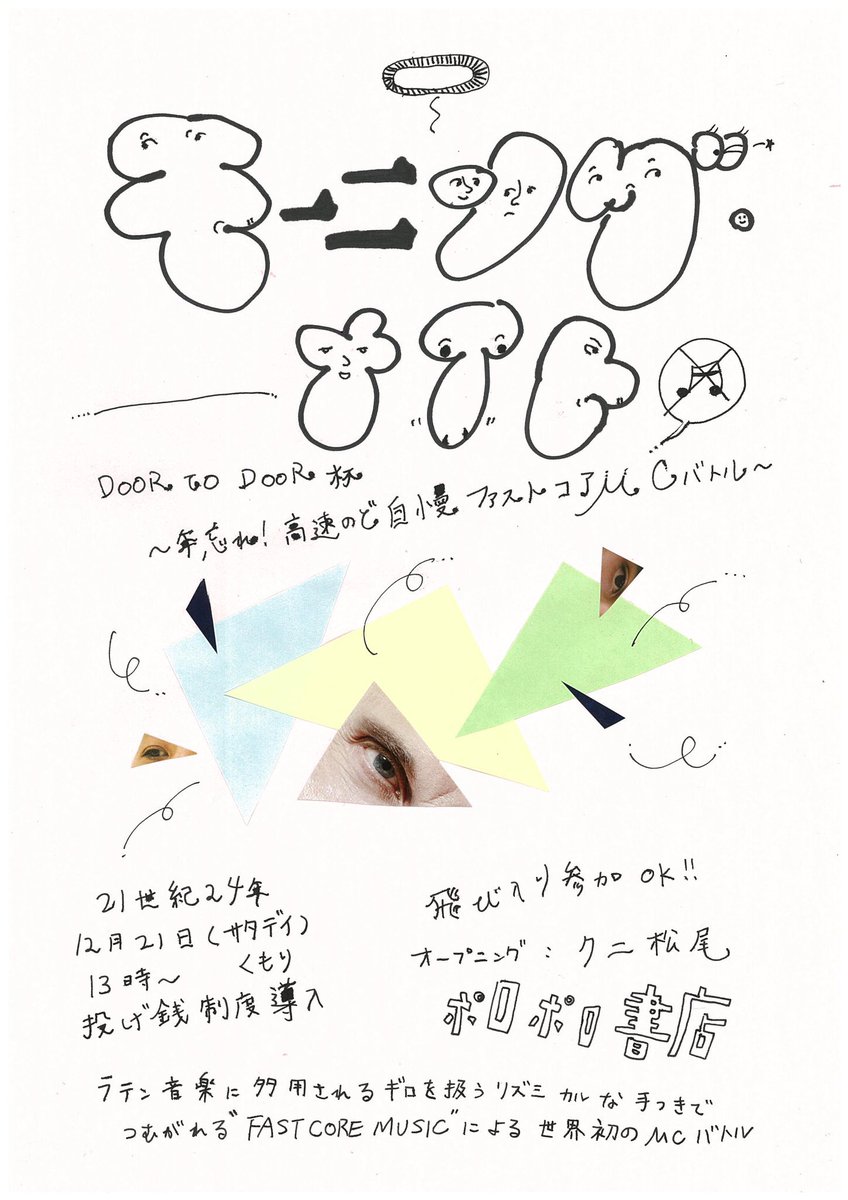 モーニング
DOOR TO DOOR 杯
〜年忘れ！高速のど自慢 ファストコアMCバトル〜
21世紀24年
12月21日(サタデイ)
13時〜 くもり
投げ銭制度導入
飛び入り参加OK!!
オープニング：クニ松尾
ポロポロ書店
ラテン音楽に多用されるギロを扱うリズミカルな手つきで
つむがれる"FAST CORE MUSIC"による世界初のMCバトル